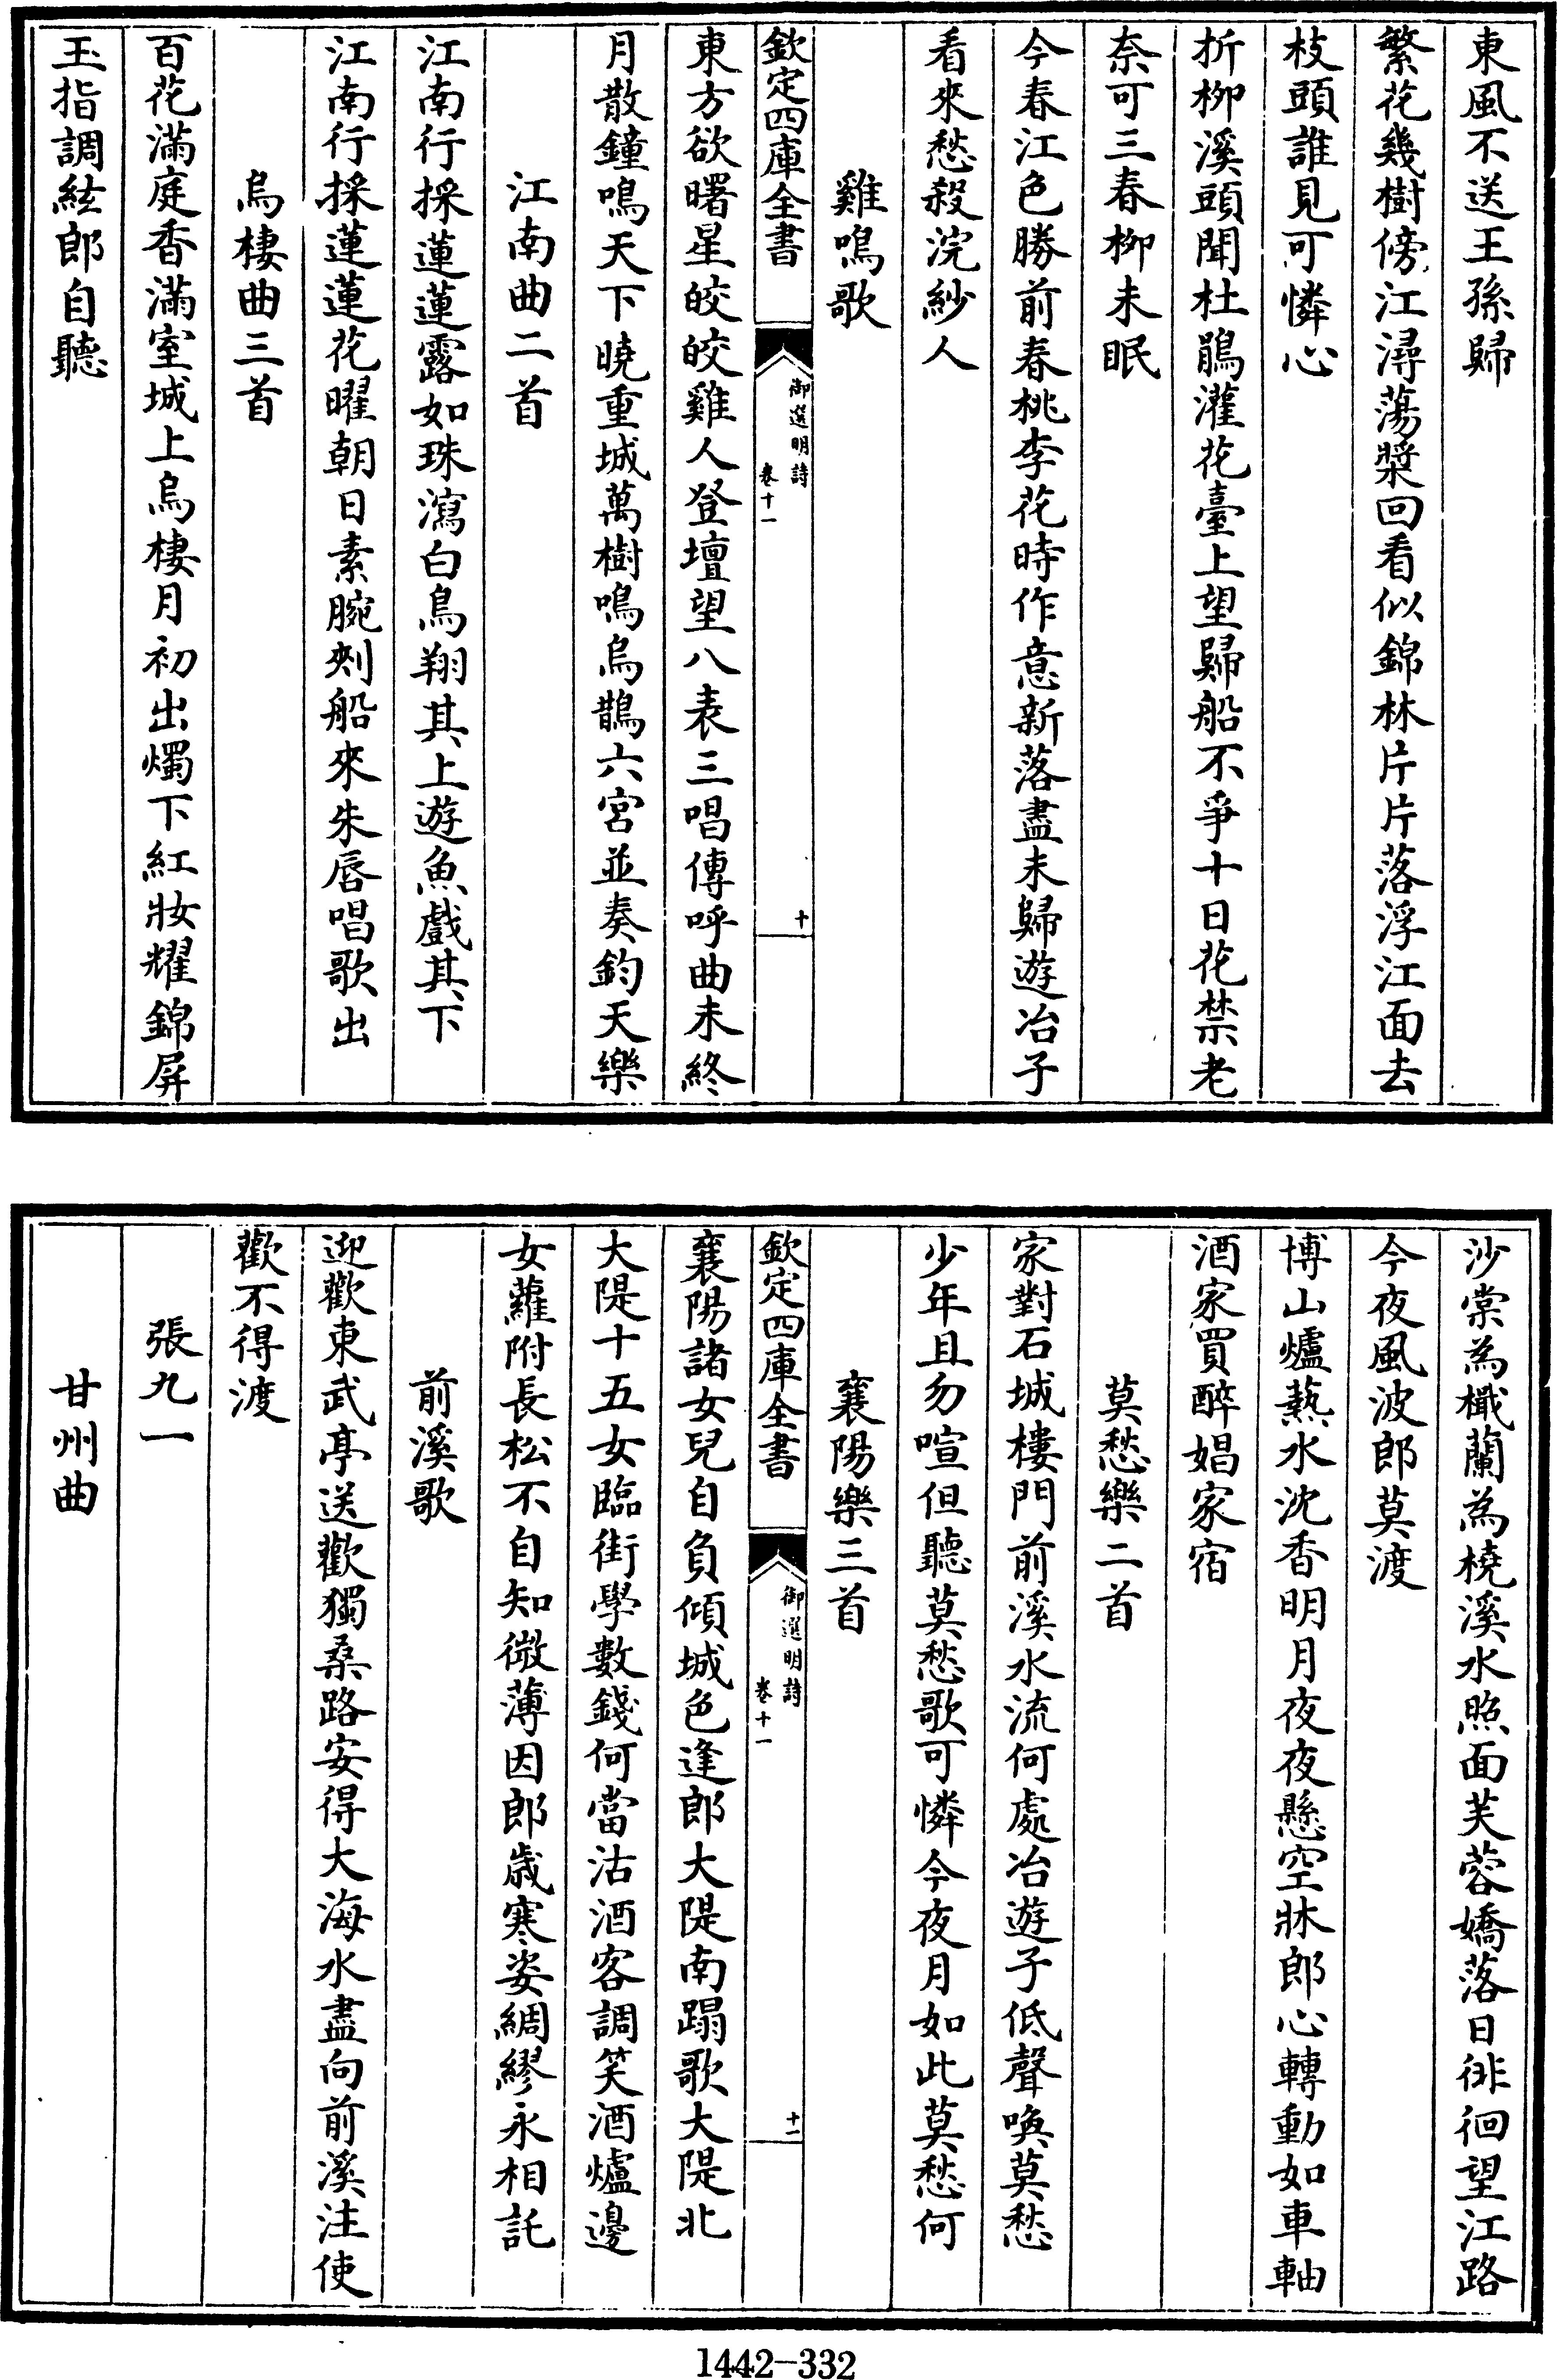 東風不送王孫歸
繁花幾樹傍江潯蕩槳回看似錦林片片落浮江面去
枝頭誰見可憐心
折柳溪頭聞杜鵑灌花臺上望歸船不爭十日花禁老
奈可三春柳未眠
今春江色勝前春桃李花時作意新落盡未歸遊冶子
看來愁殺浣紗人
雞鳴歌
欽定四庫全書
御選明詩
卷十一
十
東方欲曙星皎皎雞人登壇望八表三唱傳呼曲未終
月散鐘鳴天下曉重城萬樹鳴烏鵲六宮並奏鈞天樂
江南曲二首
江南行採蓮蓮露如珠瀉白鳥翔其上遊魚戲其下
江南行採蓮蓮花曜朝日素腕刺船來朱唇唱歌出
烏棲曲三首
百花滿庭香滿室城上烏棲月初出燭下紅妝耀錦屏
玉指調絃郎自聽
沙棠為檝蘭為橈溪水照面芙蓉嬌落日徘徊望江路
今夜風波郎莫渡
博山爐爇水沈香明月夜夜懸空牀郎心轉動如車軸
酒家買醉娼家宿
莫愁樂二首
家對石城樓門前溪水流何處冶遊子低聲喚莫愁
少年且勿喧但聽莫愁歌可憐今夜月如此莫愁何
襄陽樂三首
欽定四庫全書
御選明詩
卷十一
十一
襄陽諸女兒自負傾城色逢郎大隄南蹋歌大隄北
大隄十五女臨街學數錢何當沽酒客調笑酒爐邊
女蘿附長松不自知微薄因郎歲寒姿綢繆永相託
前溪歌
迎歡東武亭送歡獨桑路安得大海水盡向前溪注使
歡不得渡
張九一
甘州曲
1442-332